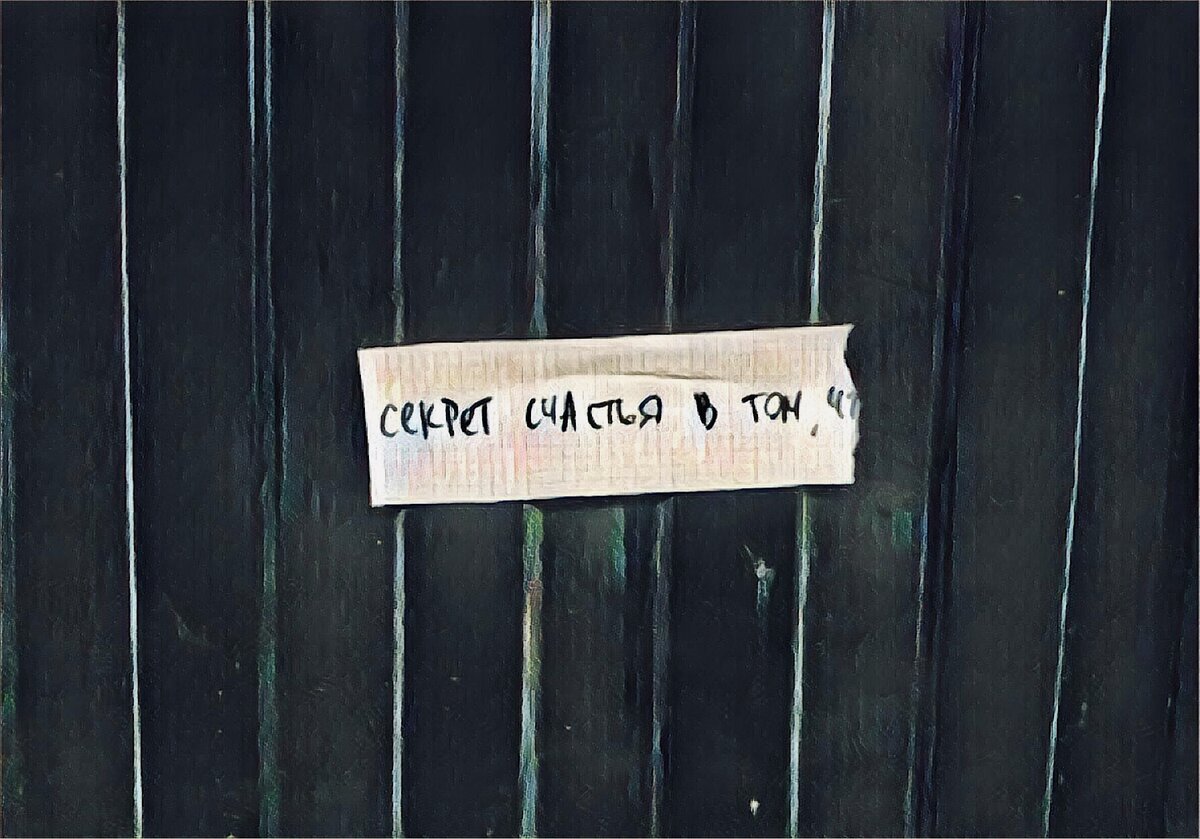 секрет счастья в том, чт